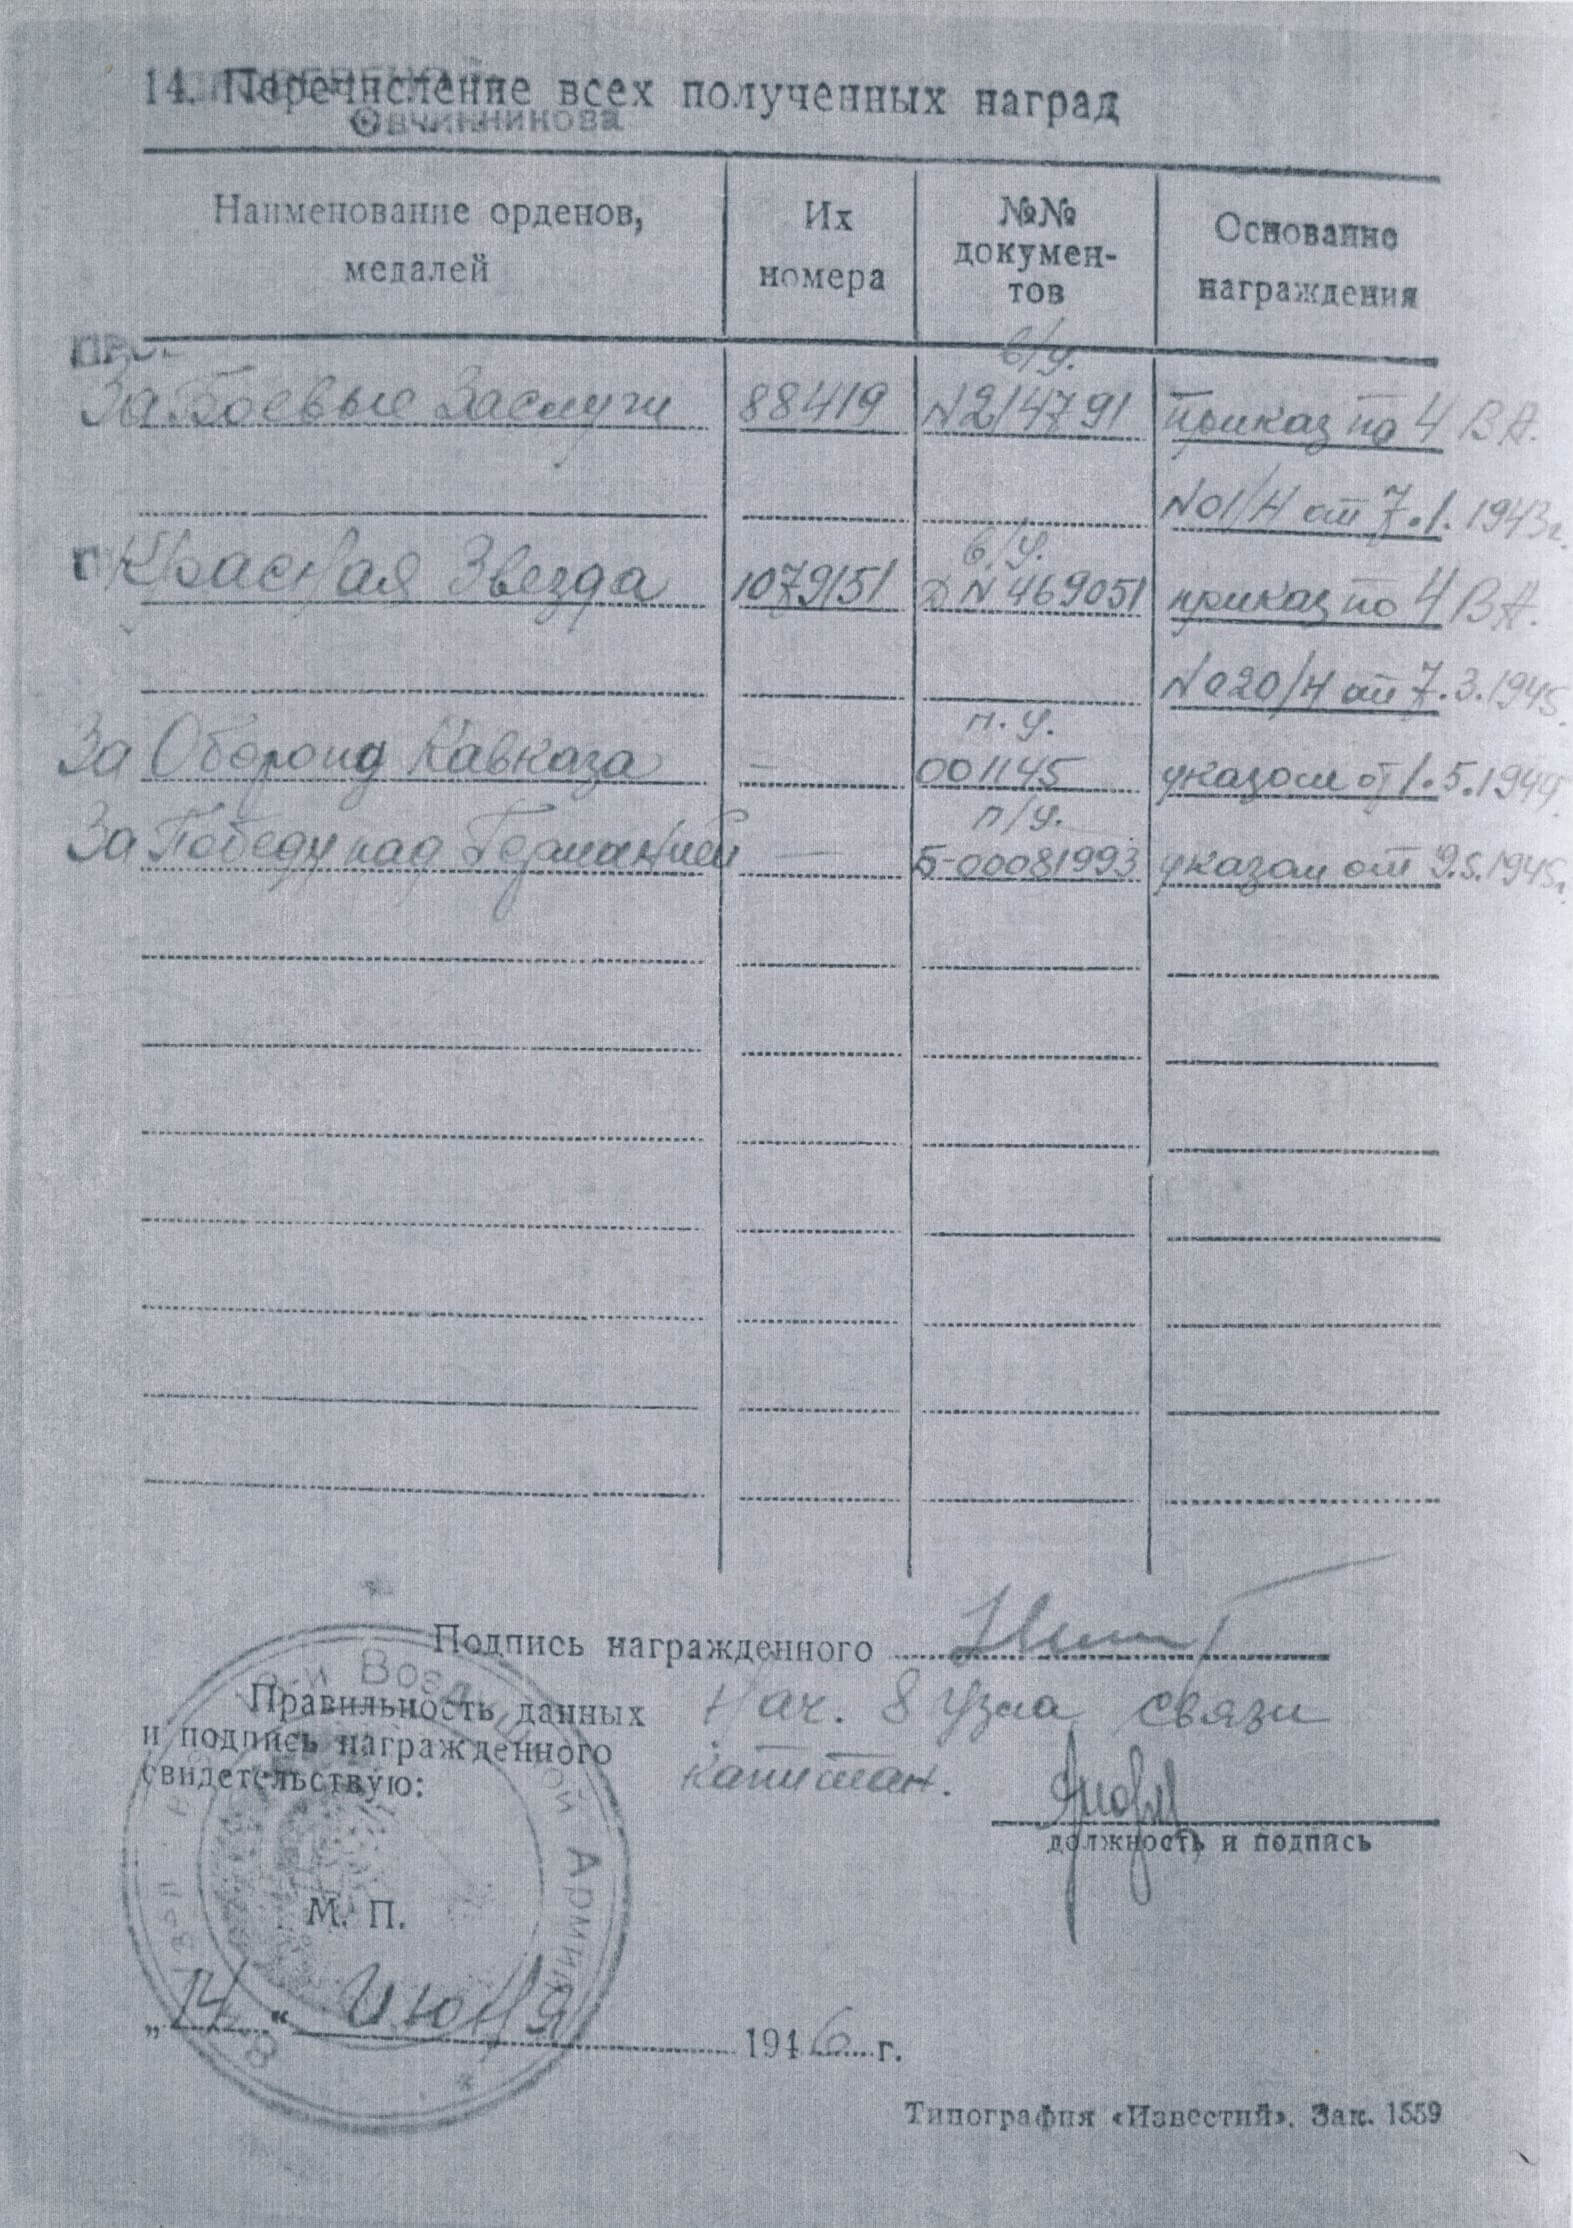 14. Перечисление всех полученных наград
Овчинникова
Наименование орденов, медалей
Их номера
№№ документов
Основание награждения
в/у.
За Боевые Заслуги 88419 N214791 приказ по 4 ВА.
N01/Н от 7.1.1943г.
в/у.
Красная Звезда 1079151 Д N469051 приказ по 4 ВА.
N020/Н от 7.3.1945.
п.у.
За Оборону Кавказа — 001145 указом от 1.5.1944
п/у.
За Победу над Германией — Б-00081993 указом от 9.5.1945г.
Подпись награжденного
Правильность данных
и подпись награжденного
свидетельствую:
Нач. 8 узла связи
капитан.
должность и подпись
Воздушной Армии
М. П.
„14“ Июня 1946 г.
Типография «Известий». Зак. 1559